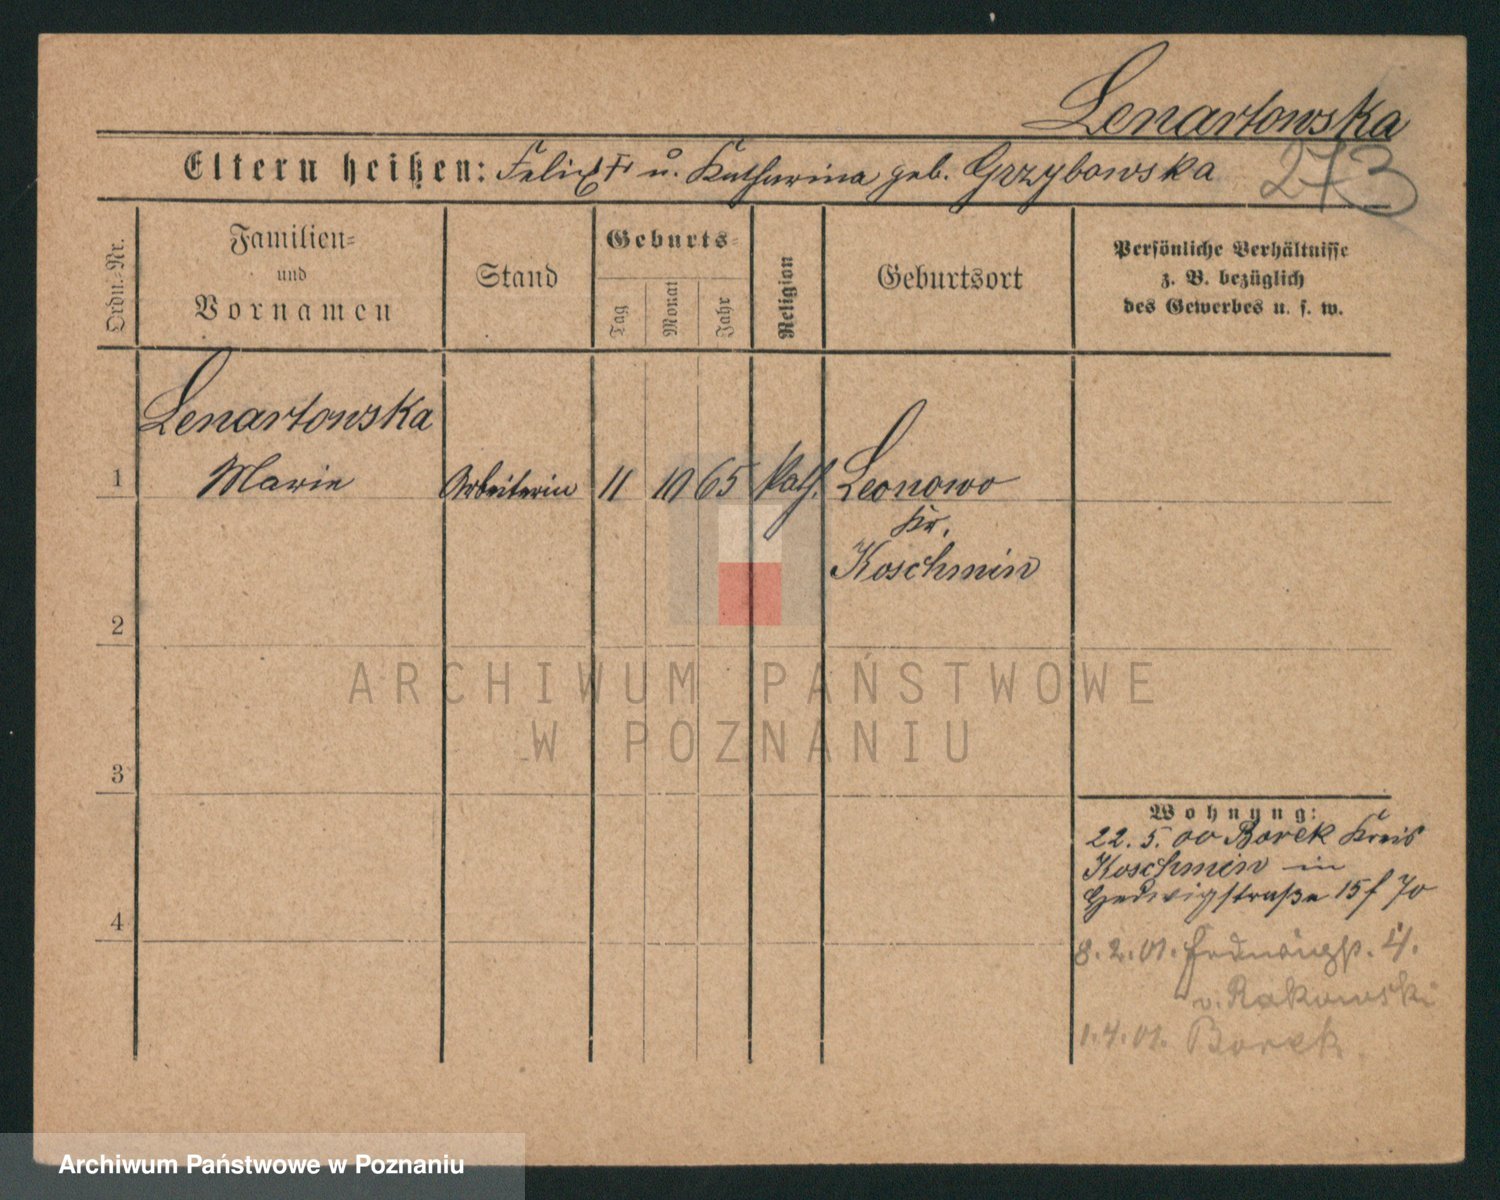 Lenartowska
273
Eltern heißen: Felix u. Katharina geb. Grzybowska
Ordn.-Nr.
Familien-
und
Vornamen
Stand
Geburts-
Tag
Monat
Jahr
Religion
Geburtsort
Persönliche Verhältnisse
z. B. bezüglich
des Gewerbes u. s. w.
Lenartowska
1 Marie Arbeiterin 11 10 65 kath. Leonowo
Kr.
Koschmin
2
ARCHIWUM PAŃSTWOWE
W POZNANIU
3
Wohnung:
22. 5. 00 Borek Kreis
Koschmin in
Hedwigstraße 15 f 70
4
8. 2. 01. 4.
v. Rakowski
1. 4. 01. Borek
Archiwum Państwowe w Poznaniu